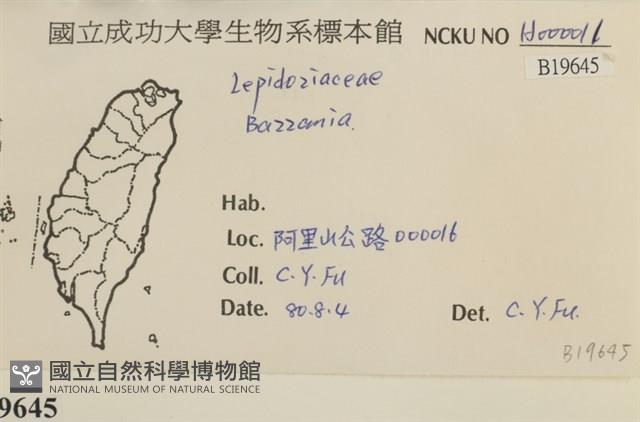 國立成功大學生物系標本館 NCKU NO H000016
B19645
Lepidoziaceae
Bazzania.
Hab.
Loc. 阿里山公路000016
Coll. C.Y.Fu
Date. 80.8.4 Det. C.Y.Fu.
B19645
國立自然科學博物館
NATIONAL MUSEUM OF NATURAL SCIENCE
9645